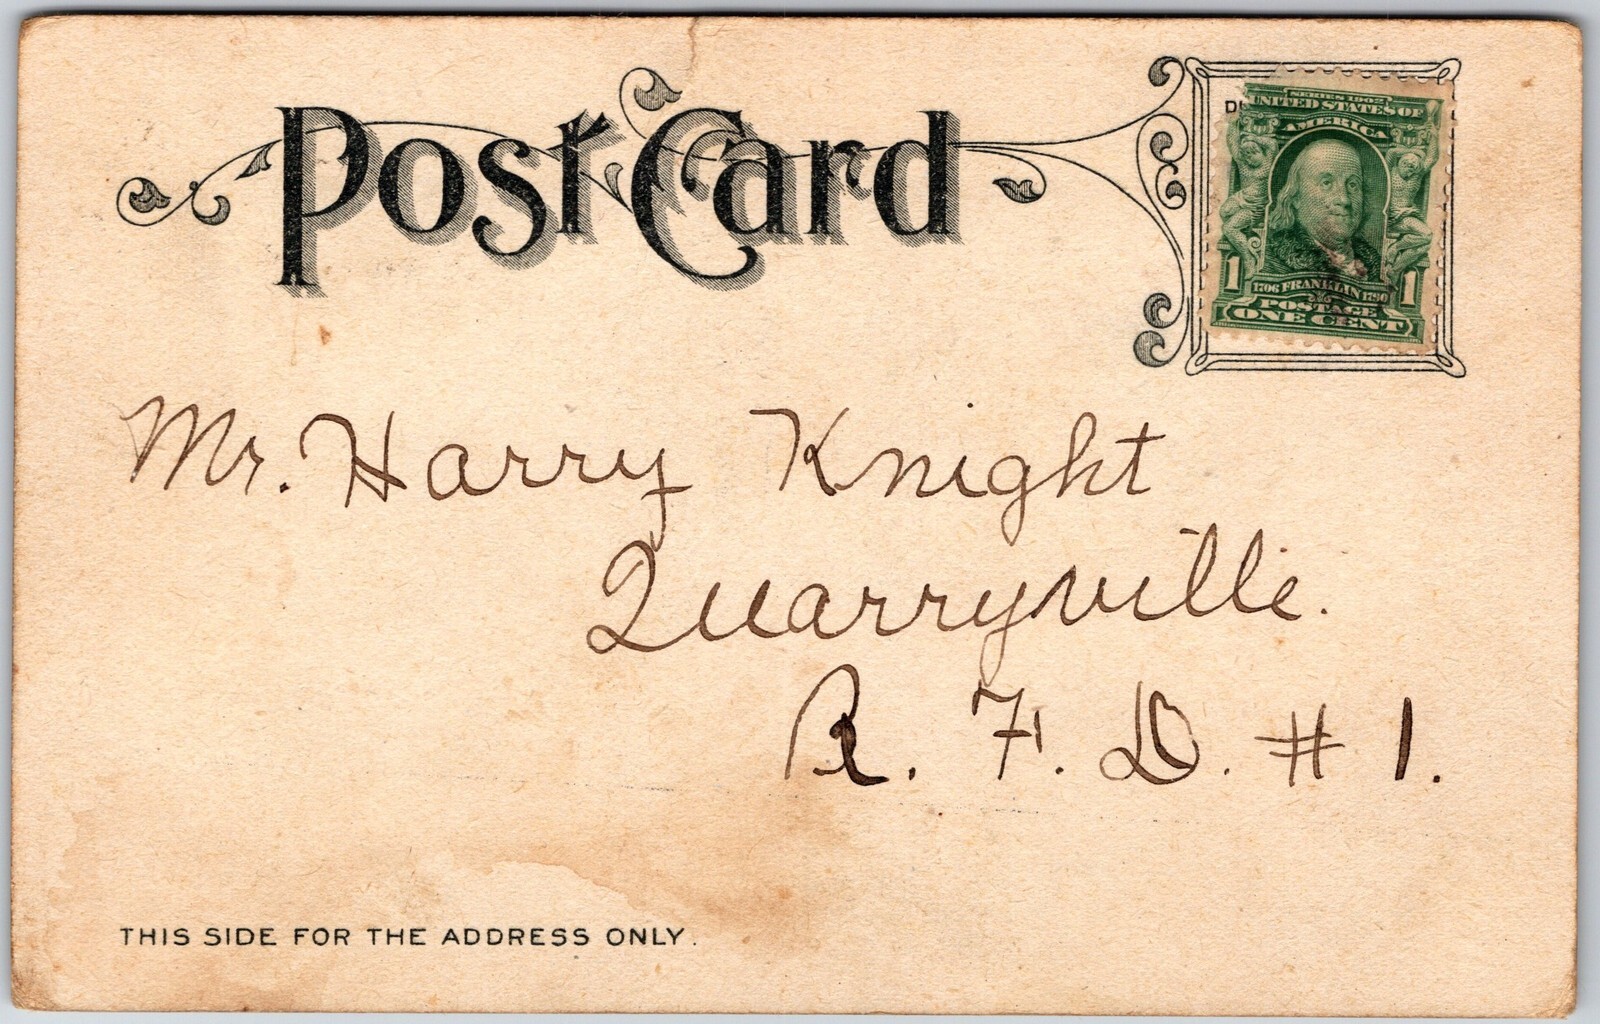 Post Card
SERIES 1902
UNITED STATES OF
AMERICA
1 1
1706 FRANKLIN 1790
POSTAGE
ONE CENT
Mr. Harry Knight
Quarryville.
R. F. D. # 1.
THIS SIDE FOR THE ADDRESS ONLY.